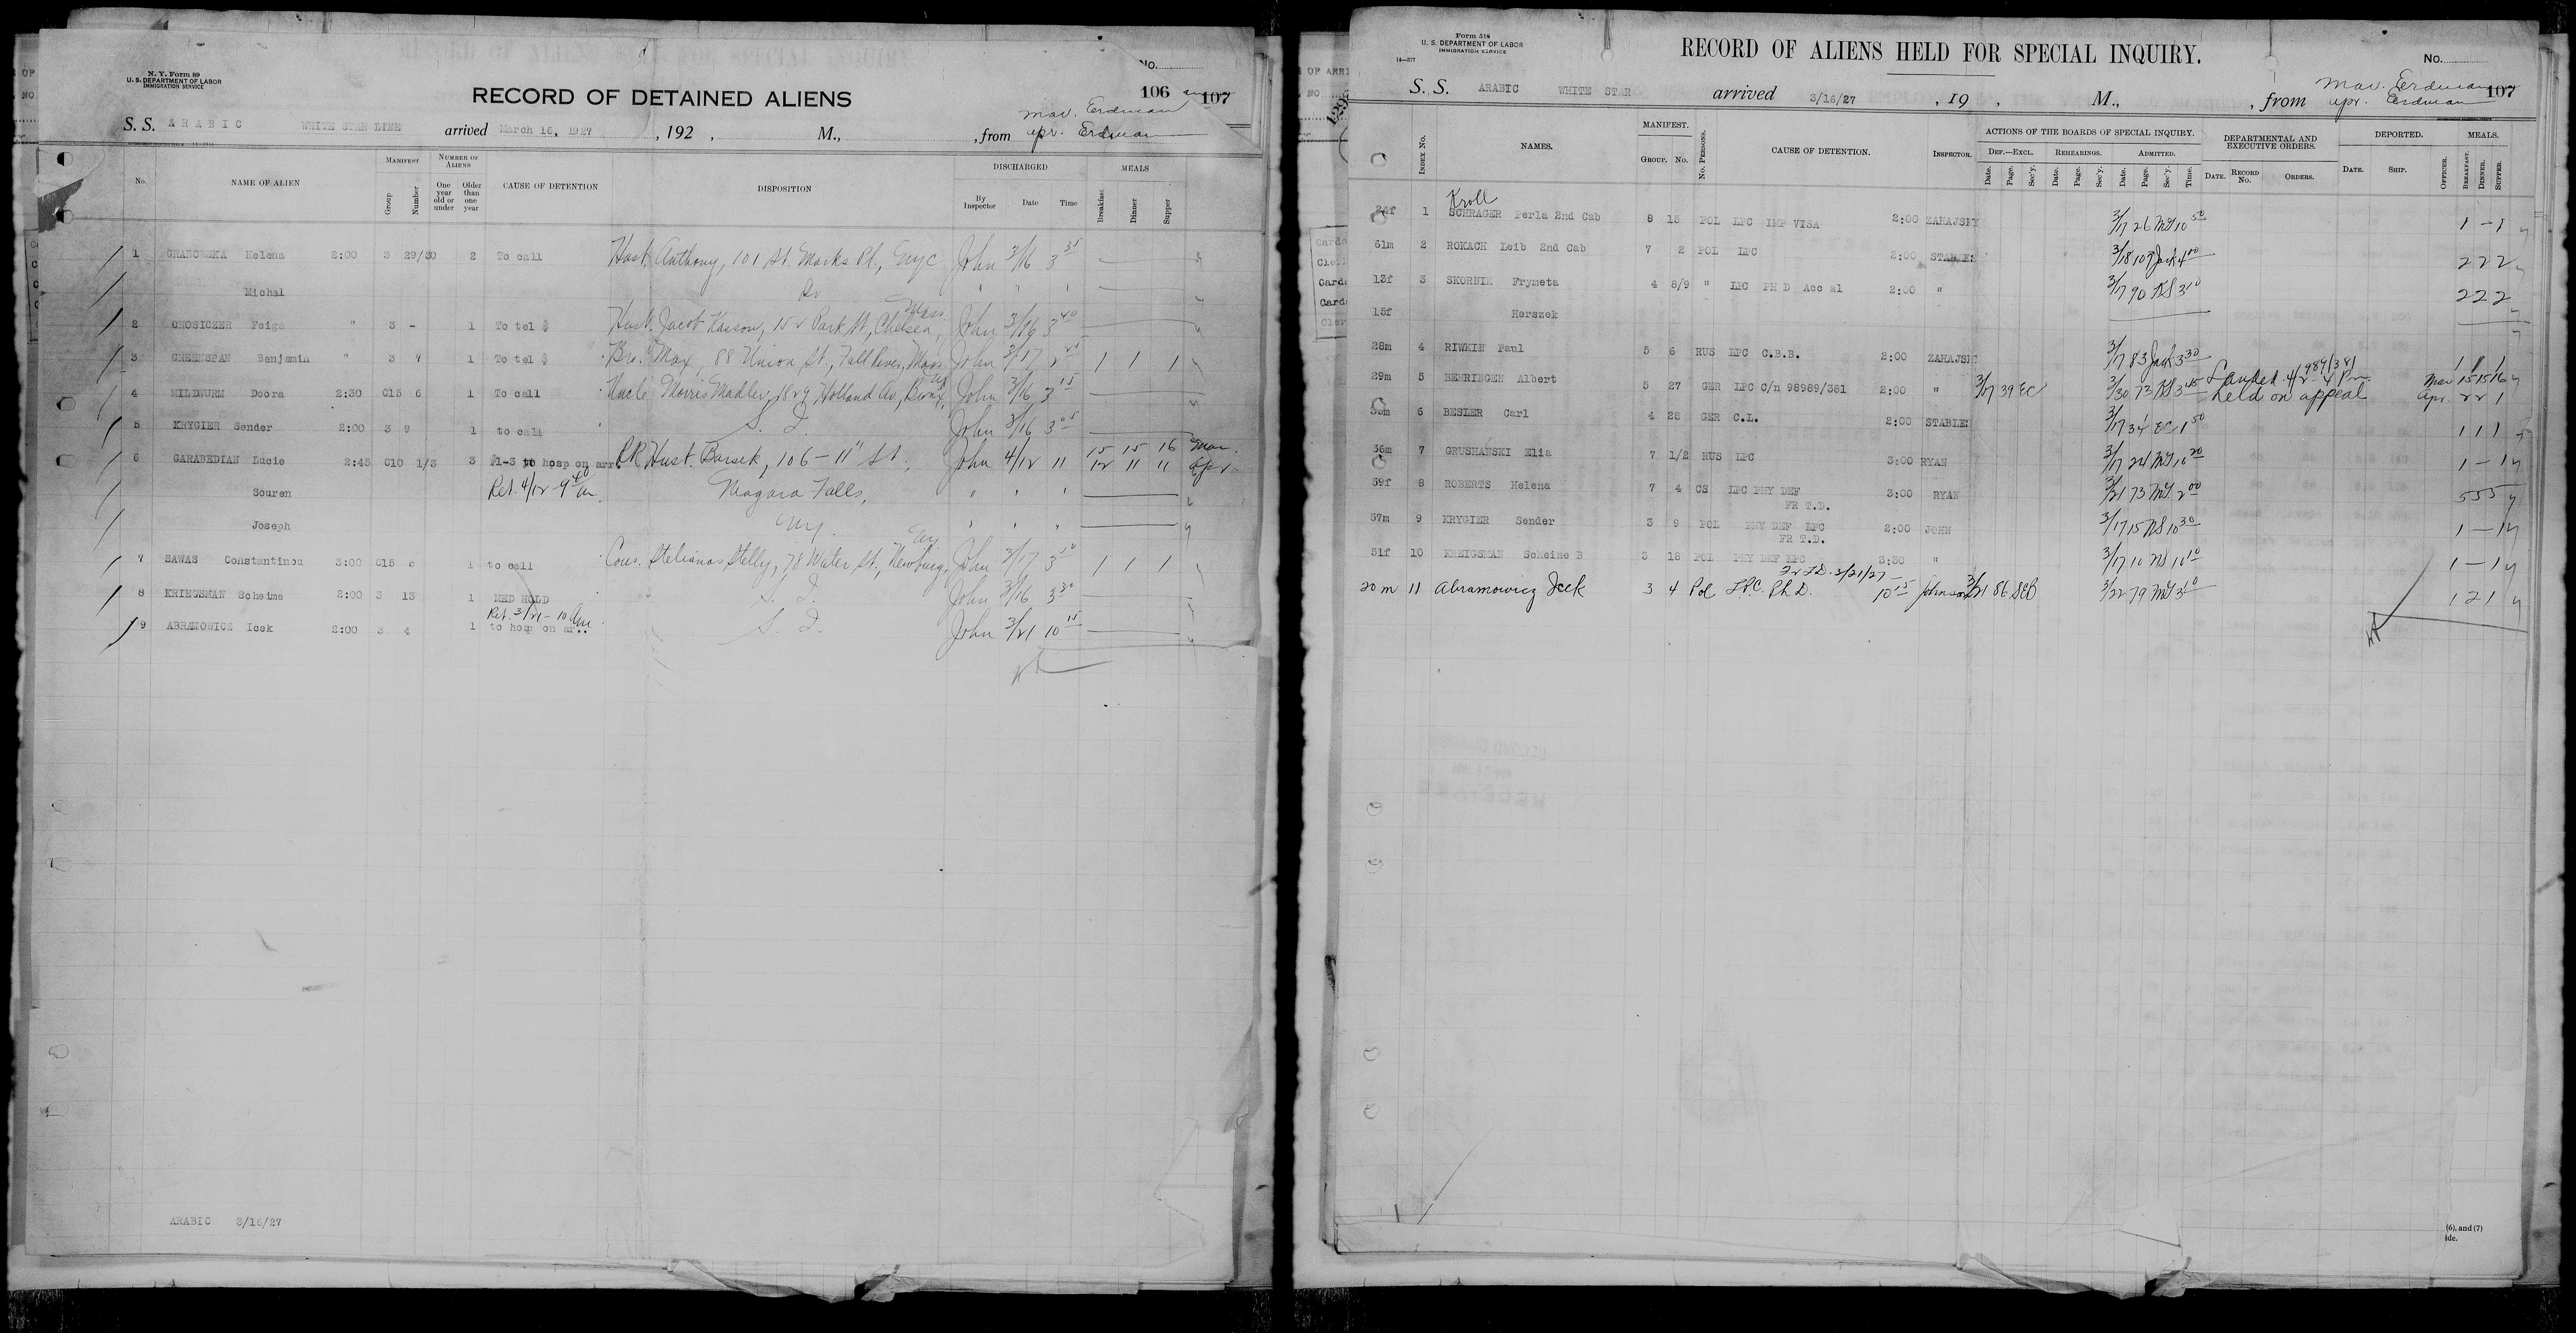 N. Y. Form 89
U. S. DEPARTMENT OF LABOR
IMMIGRATION SERVICE
No.
RECORD OF DETAINED ALIENS
106
107
S. S. ARABIC WHITE STAR LINE arrived March 16, 1927, 192 , M., , from Mar. Erdman
apr. Erdman
No. NAME OF ALIEN MANIFEST Group Number NUMBER OF ALIENS One year old or under Older than one year CAUSE OF DETENTION DISPOSITION DISCHARGED By Inspector Date Time MEALS Breakfast Dinner Supper
1 GRABOWSKA Helena 2:00 3 29/30 2 To call Husb. Anthony, 101 St. Marks Pl., Nyc John 3/16 3 35
Michal " " "
2 CHOSICZER Feiga " 3 - 1 To tel $ Husb. Jacob Kasson, 152 Park St., Chelsea, Mass. John 3/16 3 40
3 GREENSPAN Benjamin " 3 7 1 To tel $ Bro. Max, 88 Union St., Fall River, Mass. John 3/17 2 25 1 1 1
4 MILDWURM Doora 2:30 C15 6 1 To call Uncle Morris Madler, 1829 Holland Av, Bronx, Ny John 3/16 3 15
5 KRYGIER Sender 2:00 3 9 1 to call S. I. John 3/16 3 05
6 GARABEDIAN Lucie 2:45 C10 1/3 3 A1-3 to hosp on arr. RR Husb. Barsek, 106 - 11" St., John 4/12 11 15 15 16 Mar.
12 11 11 Apr.
Souren Ret. 4/12 - 9 40 am. Niagara Falls, " " "
Joseph Ny. " " "
7 SAWAS Constantinou 3:00 C15 1 to call Cous. Stelianos Stelly, 78 Water St., Newburg, Ny John 3/17 3 50 1 1 1
8 KRIEGSMAN Scheime 2:00 3 13 1 MED HOLD S. I. John 3/16 3 30
Ret. 3/21 - 10 am.
9 ABRAMOWICZ Icek 2:00 3 4 1 to hosp on ar.. S. I. John 3/21 10 15
ARABIC 3/16/27
Form 518
U. S. DEPARTMENT OF LABOR
IMMIGRATION SERVICE
14—377
RECORD OF ALIENS HELD FOR SPECIAL INQUIRY.
No.
107
S. S. ARABIC WHITE STAR arrived 3/16/27 , 19 , M., , from Mar. Erdman
apr. Erdman
INDEX No. NAMES. MANIFEST. GROUP. No. No. PERSONS. CAUSE OF DETENTION. INSPECTOR. ACTIONS OF THE BOARDS OF SPECIAL INQUIRY. DEF.—EXCL. Date. Page. Sec'y. REHEARINGS. Date. Page. Sec'y. ADMITTED. Date. Page. Sec'y. Time. DEPARTMENTAL AND EXECUTIVE ORDERS. DATE. RECORD No. ORDERS. DEPORTED. DATE. SHIP. OFFICER. MEALS. BREAKFAST. DINNER. SUPPER.
Kroll
24f 1 SCHRAGER Perla 2nd Cab 8 15 POL LPC IMP VISA 2:00 ZAHAJSKY 3/17 26 MG 10 50 1 - 1
61m 2 ROKACH Leib 2nd Cab 7 2 POL LPC 2:00 STABLES 3/18 109 Jack 4 00 2 2 2
13f 3 SKORNIK Frymeta 4 8/9 " LPC PH D Acc al 2:00 " 3/17 90 NS 3 10 2 2 2
15f Herszek
28m 4 RIWKIN Paul 5 6 RUS LPC C.B.B. 2:00 ZAHAJSK 3/17 83 Jack 3 30 1 1 1
29m 5 BEHRINGEN Albert 5 27 GER LPC C/n 98989/381 2:00 " 3/17 39 EC 3/30 73 NS 3 45 Landed 4/2 - 4 Pm. Mar 15 15 16
held on appeal Apr. 2 2 1
6 BESLER Carl 4 28 GER C.L. 2:00 STABLES 3/17 34 EC 1 50 1 1 1
56m 7 GRUSHANSKI Elia 7 1/2 RUS LPC 3:00 RYAN 3/17 24 MG 10 20 1 - 1
59f 8 ROBERTS Helena 7 4 CS LPC PHY DEF 3:00 RYAN 3/21 73 MG 2 00 5 5 5
FR T.D.
57m 9 KRYGIER Sender 3 9 POL PHY DEF LPC 2:00 JOHN 3/17 15 NS 10 30 1 - 1
FR T.D.
51f 10 KREIGSMAN Scheine B 3 18 POL PHY DEF LPC 3:30 " 3/17 10 NS 10 10 1 - 1
3/21/27
20m 11 Abramowicz Icek 3 4 Pol LPC. Ph D. 10 15 Johnson 3/21 86 SEB 3/22 79 MG 3 10 1 2 1
(6), and (7)
ide.